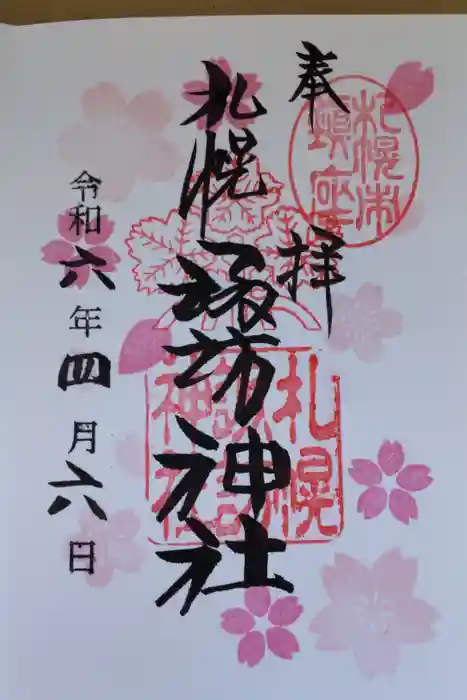 奉拝
札幌市鎮座
札幌諏訪神社
札幌諏訪神社
令和六年四月六日